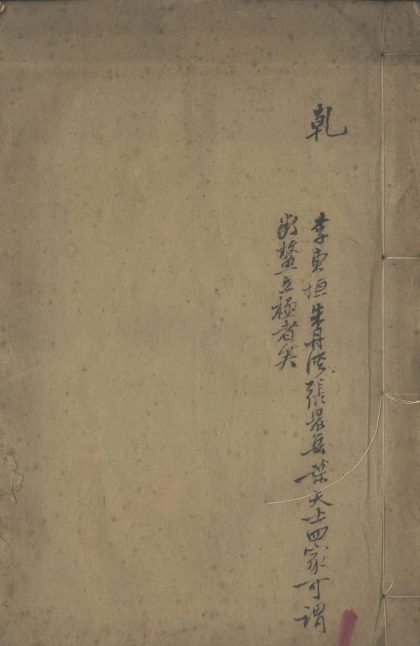 乾
李東垣朱丹溪張景岳葉天士四家可謂
斷鰲立極者矣